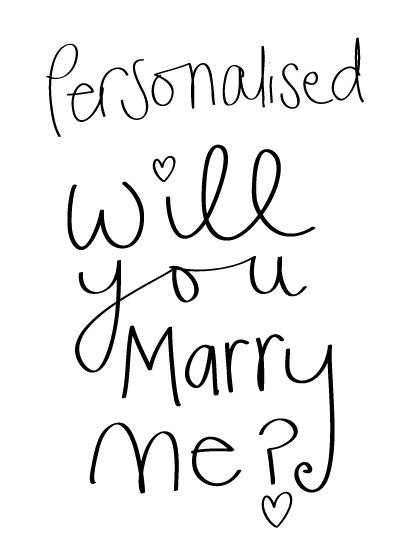 Personalised
Will
you
Marry
Me?